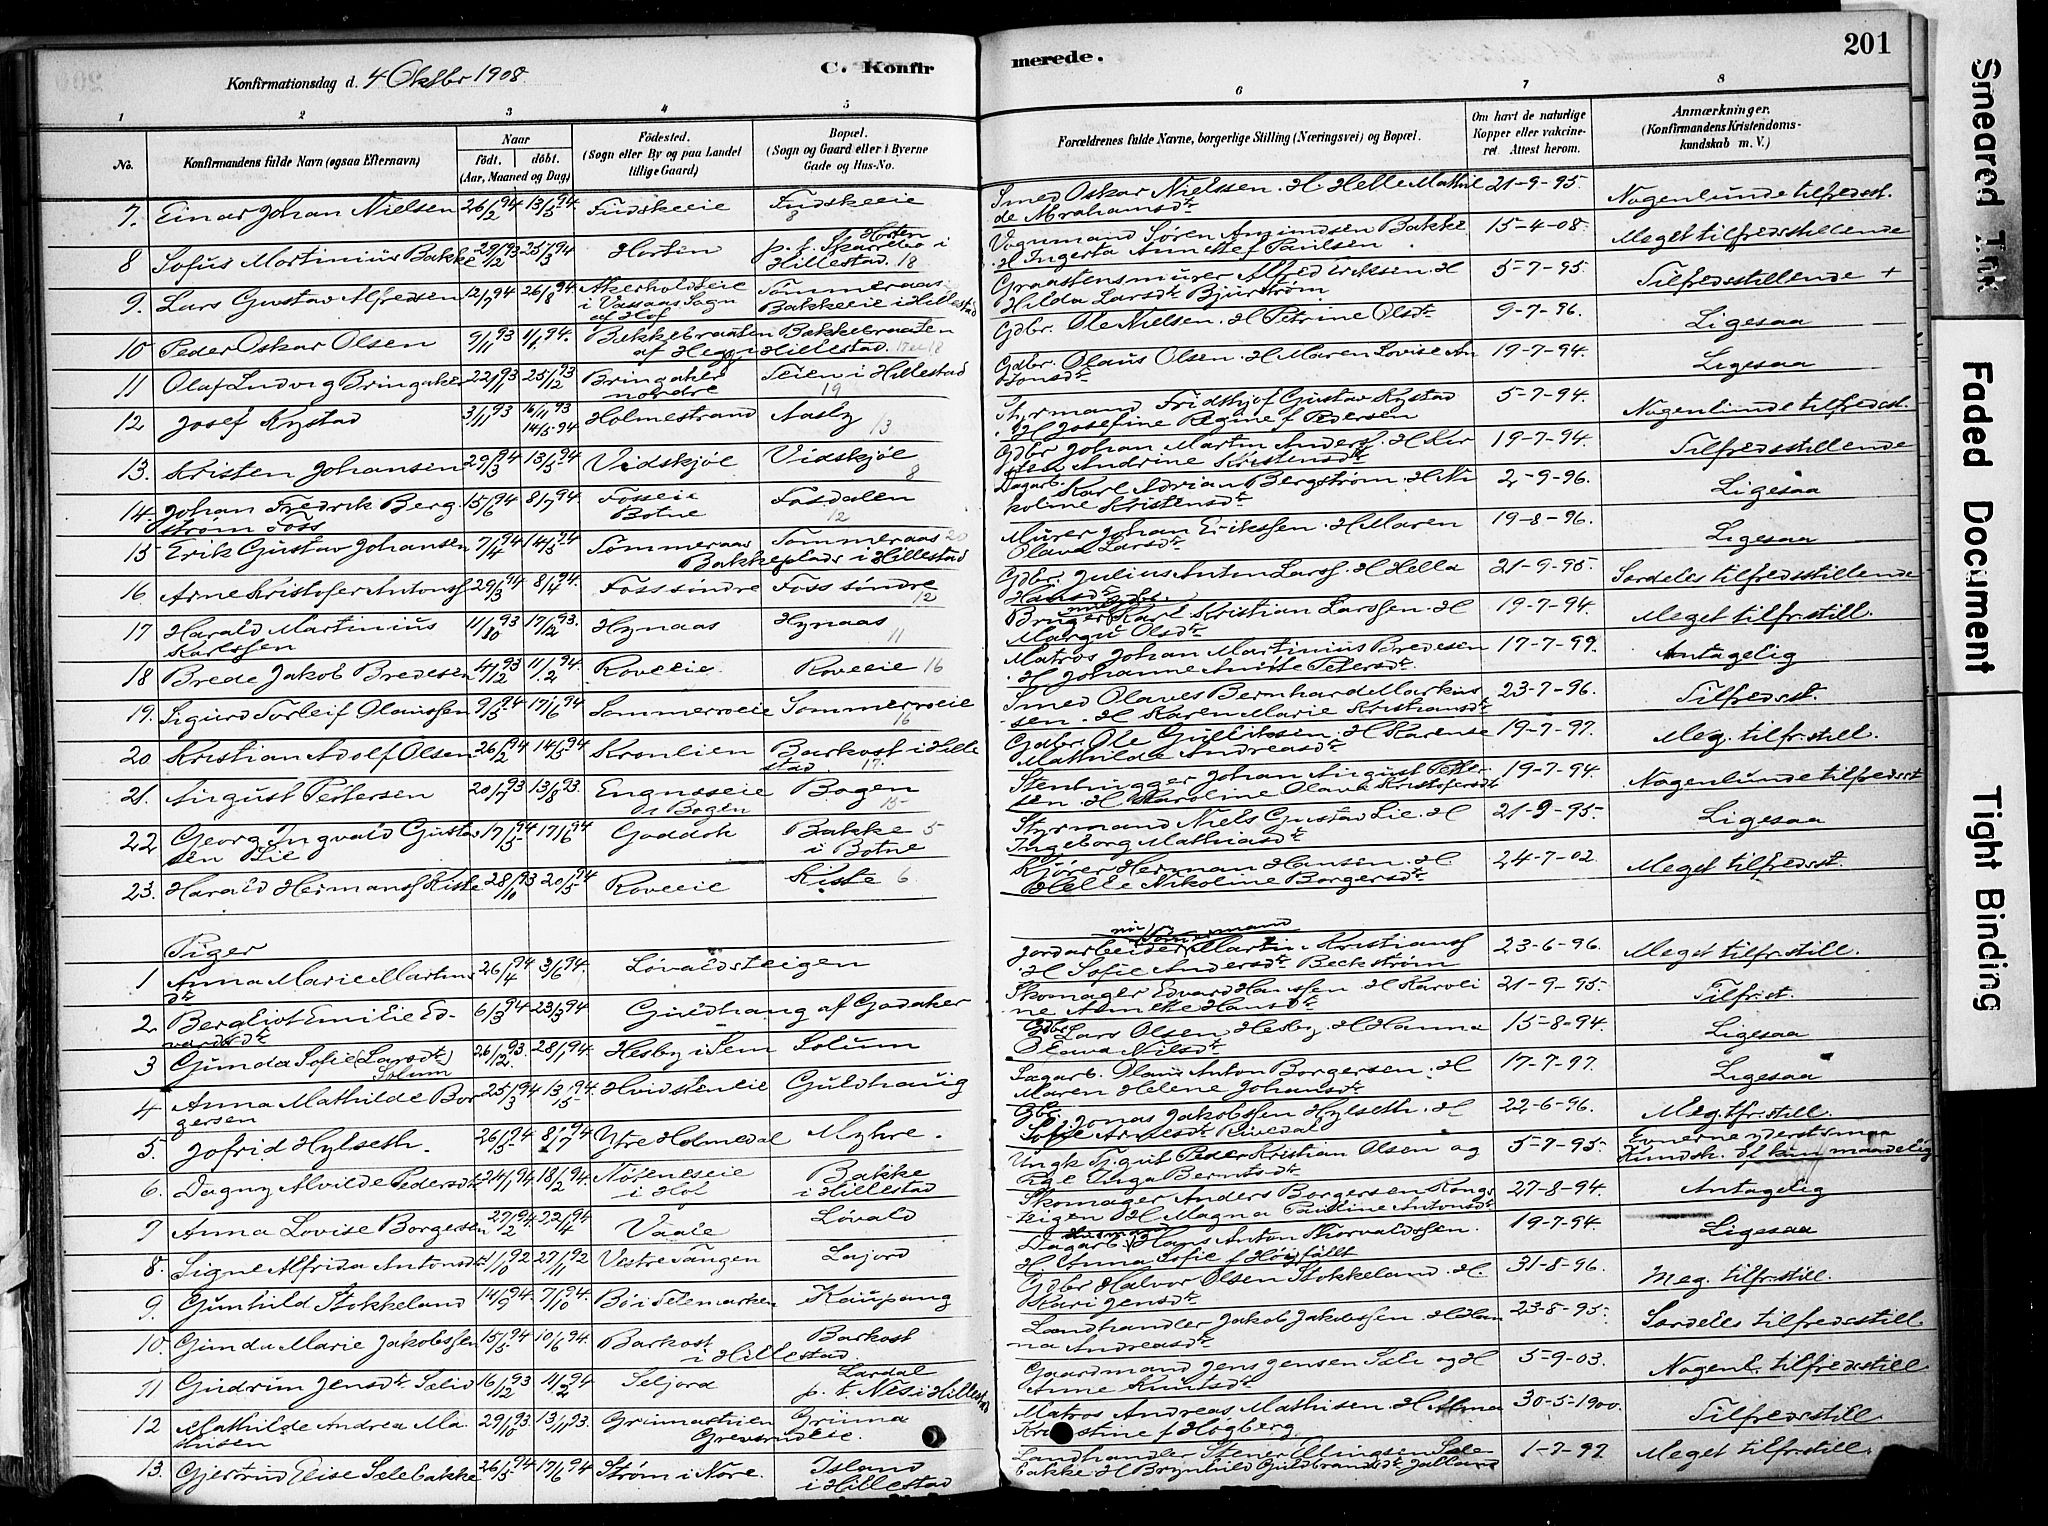 201
C. Konfir
merede.
Konfirmationsdag d. 4 Oktbr 1908.
1 2 3 4 5 6 7 8
No. Konfirmandens fulde Navn (ogsaa Efternavn) Naar født, døbt. (Aar, Maaned og Dag) Fødested. (Sogn eller By og paa Landet tillige Gaard) Bopæl. (Sogn og Gaard eller i Byerne Gade og Hus-No. Forældrenes fulde Navne, borgerlige Stilling (Næringsvei) og Bopæl. Om havt de naturlige Kopper eller vakcineret. Attest herom. Anmærkninger. (Konfirmandens Kristendomskundskab m. V.)
7. Einar Johan Nielsen 26/2 94 13/5 94. Smed Oskar Nielsen. H. Helle Mathilde Abrahamsdt. 21-9-95. Nogenlunde tilfredsst.
8 Sofus Martinius Bakke 29/12 93 25/3 94 Horten Horten p. t. i Hillestad. 18 Vognmand Søren Amundsen Bakke H. Ingerta Annette f Paulsen 15-4-08. Meget tilfredsstillende
9. Lars Gustav Alfredsen 12/7 94 26/8 94 Akerholdteie i Vassaas Sogn af Hof Sommeraas Bakkeeie i Hillestad Graastensmurer Alfred H Hilda Larsdt. Bjurstrøm 5-7-95. Tilfredsstillende +
10 Peder Oskar Olsen 9/11 93 1/1 94. Bakkebraaten af Hegg Bakkebraaten i Hillestad. Gdbr. Ole Nielsen. H Petrine Olsdt. 9-7-96. Ligesaa
11 Olaf Ludvig Bringaker 22/11 93 25/12 93 Bringaker nordre Teien i Hillestad 19 Gdbr. Olaus Olsen. H Maren Lovise 19-7-94. Ligesaa
12 Josef Rystad 3/11 93 14/5-94 Holmestrand Aasly 13 Fridthjof Gustav Rystad H Josefine Regine f Pedersen 5-7-94. Nogenlunde tilfredsst.
13. Kristen Johansen 29/3 94 13/5 94 Vidskjøl Vidskjøl 8 Gdbr Johan Martin Anders. H Andrine Kristensdt 19-7-94. Tilfredsstillende
14. Johan Fredrik Bergstrøm Foss 15/6 94 8/7 94. Fosseie Botne Fosdalen 12 Dagarb. Karl Adrian Bergstrøm. H Nikoline Kristensdt 2-9-96. Ligesaa
15 Erik Gustav Johansen 7/4 94 14/5 94 Sommeraas Bakkeplads Sommeraas 20 i Hillestad Murer Johan Eriksen. H Maren Olava Larsdt 19-8-96. Ligesaa
16 Arne Kristofer Antons 29/3 94 Foss søndre Foss søndre 12 Gdbr. Julius Anton Lars. H Hella Hansdt. 21-9-95. Særdeles tilfredsstillende
17 Harald Martinius Karlssen 11/10 93 17/12 93. Hynaas Hynaas 11 Bruger Karl Kristian Larssen. H Margit Olsdt. 19-7-94. Meget tilfr.still.
18 Brede Jakob Bredesen 4/12 93 11/2 94. Roveeie. Roveeie 16 Matros Johan Martinius Bredesen H Johanne Anette Petersdt. 17-7-99. Antagelig
19. Sigurd Torleif Olaussen 9/5 94 17/6 94 Sommerroeie Sommerroeie 16 Smed Olaves Bernhard Markussen. H Karen Marie Kristiansdt 23-7-96. Tilfredsst.
20 Kristian Adolf Olsen 26/2 94 14/5 94 Kronlien Barkost i Hillestad 17 Gdbr. Ole Gulliksen. H Karense Mathilde Andreasdt. 19-7-97. Meg. tilfr.still.
21. August Pettersen 20/7 93 13/8 93. Engnsseie Bogen Bogen 15 Stenhugger Johan August Pettersen. H Karoline Olava Kristofersdt 19-7-94. Nogenlunde tilfredsst
22 Georg Ingvald Gustavsen Lie 17/5 94 17/6 94 Goddok Bakke 5 i Botne Styrmand Niels Gustav Lie. H Ingeborg Mathiasdt. 21-9-95. Ligesaa
23. Harald Hermans Kiste 28/10 93 20/5 94 Roveeie Kiste 6. Kjører Herman Hansen. H. Helle Nikoline Borgersdt. 24-7-02. Meget tilfredsst.
Piger
1 Anna Marie Martinsdt 26/4 94 3/6 94. Løvaldsteigen Jordarbeider Martin Kristians H Sofie Andersdt. Beckstrøm 23-6-96. Meget tilfr.still.
2 Bergliot Emilie Edvardsdt 6/3 94 23/3 94 Guldhaug af Godaker Skomager Edvard Hanssen H Karoline Annette Hansdt. 21-9-95. Tilfr.st.
3 Gunda Sofie (Larsdt) Solum 26/12 93. 28/1 94. Hesby i Sem Solum Gdbr Lars Olsen Hesby. H Hanna Olava Nilsdt. 15-8-94. Ligesaa
4 Anna Mathilde Borgersen 25/3 94 13/5 94. Hvidsteneie Guldhaug Sagarb. Olaus Anton Borgersen. H Maren Helene Johansdt. 17-7-97. Ligesaa
5. Jofrid Hylseth. 26/5 94 8/7 94 Ytre Holmedal Myhre. Gbr. Jonas Jakobsen Hylseth. H Sofie Arnesdt. Rivedal 22-6-96. Meg. tfr.still.
6. Dagny Alvilde Pedersdt 24/1 94 18/2 94. Noteneseie i Hof Bakke i Hillestad Ungk. Peder Kristian Olsen og Pige Inga Berntsdt. 5-7-95. Evnerne yderst smaa Kundsk. kun maadelig
7 Anna Lovise Borgersen 27/2 94. 22/4 94 Vaale Løvald Skomager Anders Borgersen Kongsteigen H Magna Pauline Antonsdt 27-8-94. Antagelig
8. Signe Alfrida Antonsdt 1/10 92 27/11 92 Vestre Tangen Lajord Dagarb. Hans Anton Thorvaldsen. H Anna Sofie f 19-7-94. Ligesaa
9 Gunhild Stokkeland 14/9 94. 7/10 94. Bø i Telemarken Kaupang Gdbr Halvor Olsen Stokkeland. H. Kari Jensdt. 31-8-96. Meg. tilfr.still.
10. Gunda Marie Jakobssen 15/5 94 10/6 94. Barkost i Hillestad Barkost Landhandler Jakob Jakobssen. H Hanna Andreasdt. 23-8-95. Særdeles tilfredsstill
11 Gudrun Jensdt. Sælid 16/12 93 11/2 94 Seljord Lardal p. t. Nes i Hillestad Gaardmand Jens Jensen Sæli og H Anne Knutsdt. 5-9-03. Nogenl. tilfredsstill
12 Mathilde Andrea Mathisen 29/10 93. Grevsrudeie. Grunna Matros Andreas Mathisen. H Alma Kristine f Høgberg 30-5-1900. Tilfredsstill
13. Gjertrud Elise Sælebakke 26/5 94 17/6 94 Strøm i Nore. Island i Hillestad Landhandler Stener Ellingsen Sælebakke H Brynhild Guldbrandsdt. 1-7-97. Meget tilfr.still.
Smeared Ink
Faded Document
Tight Binding